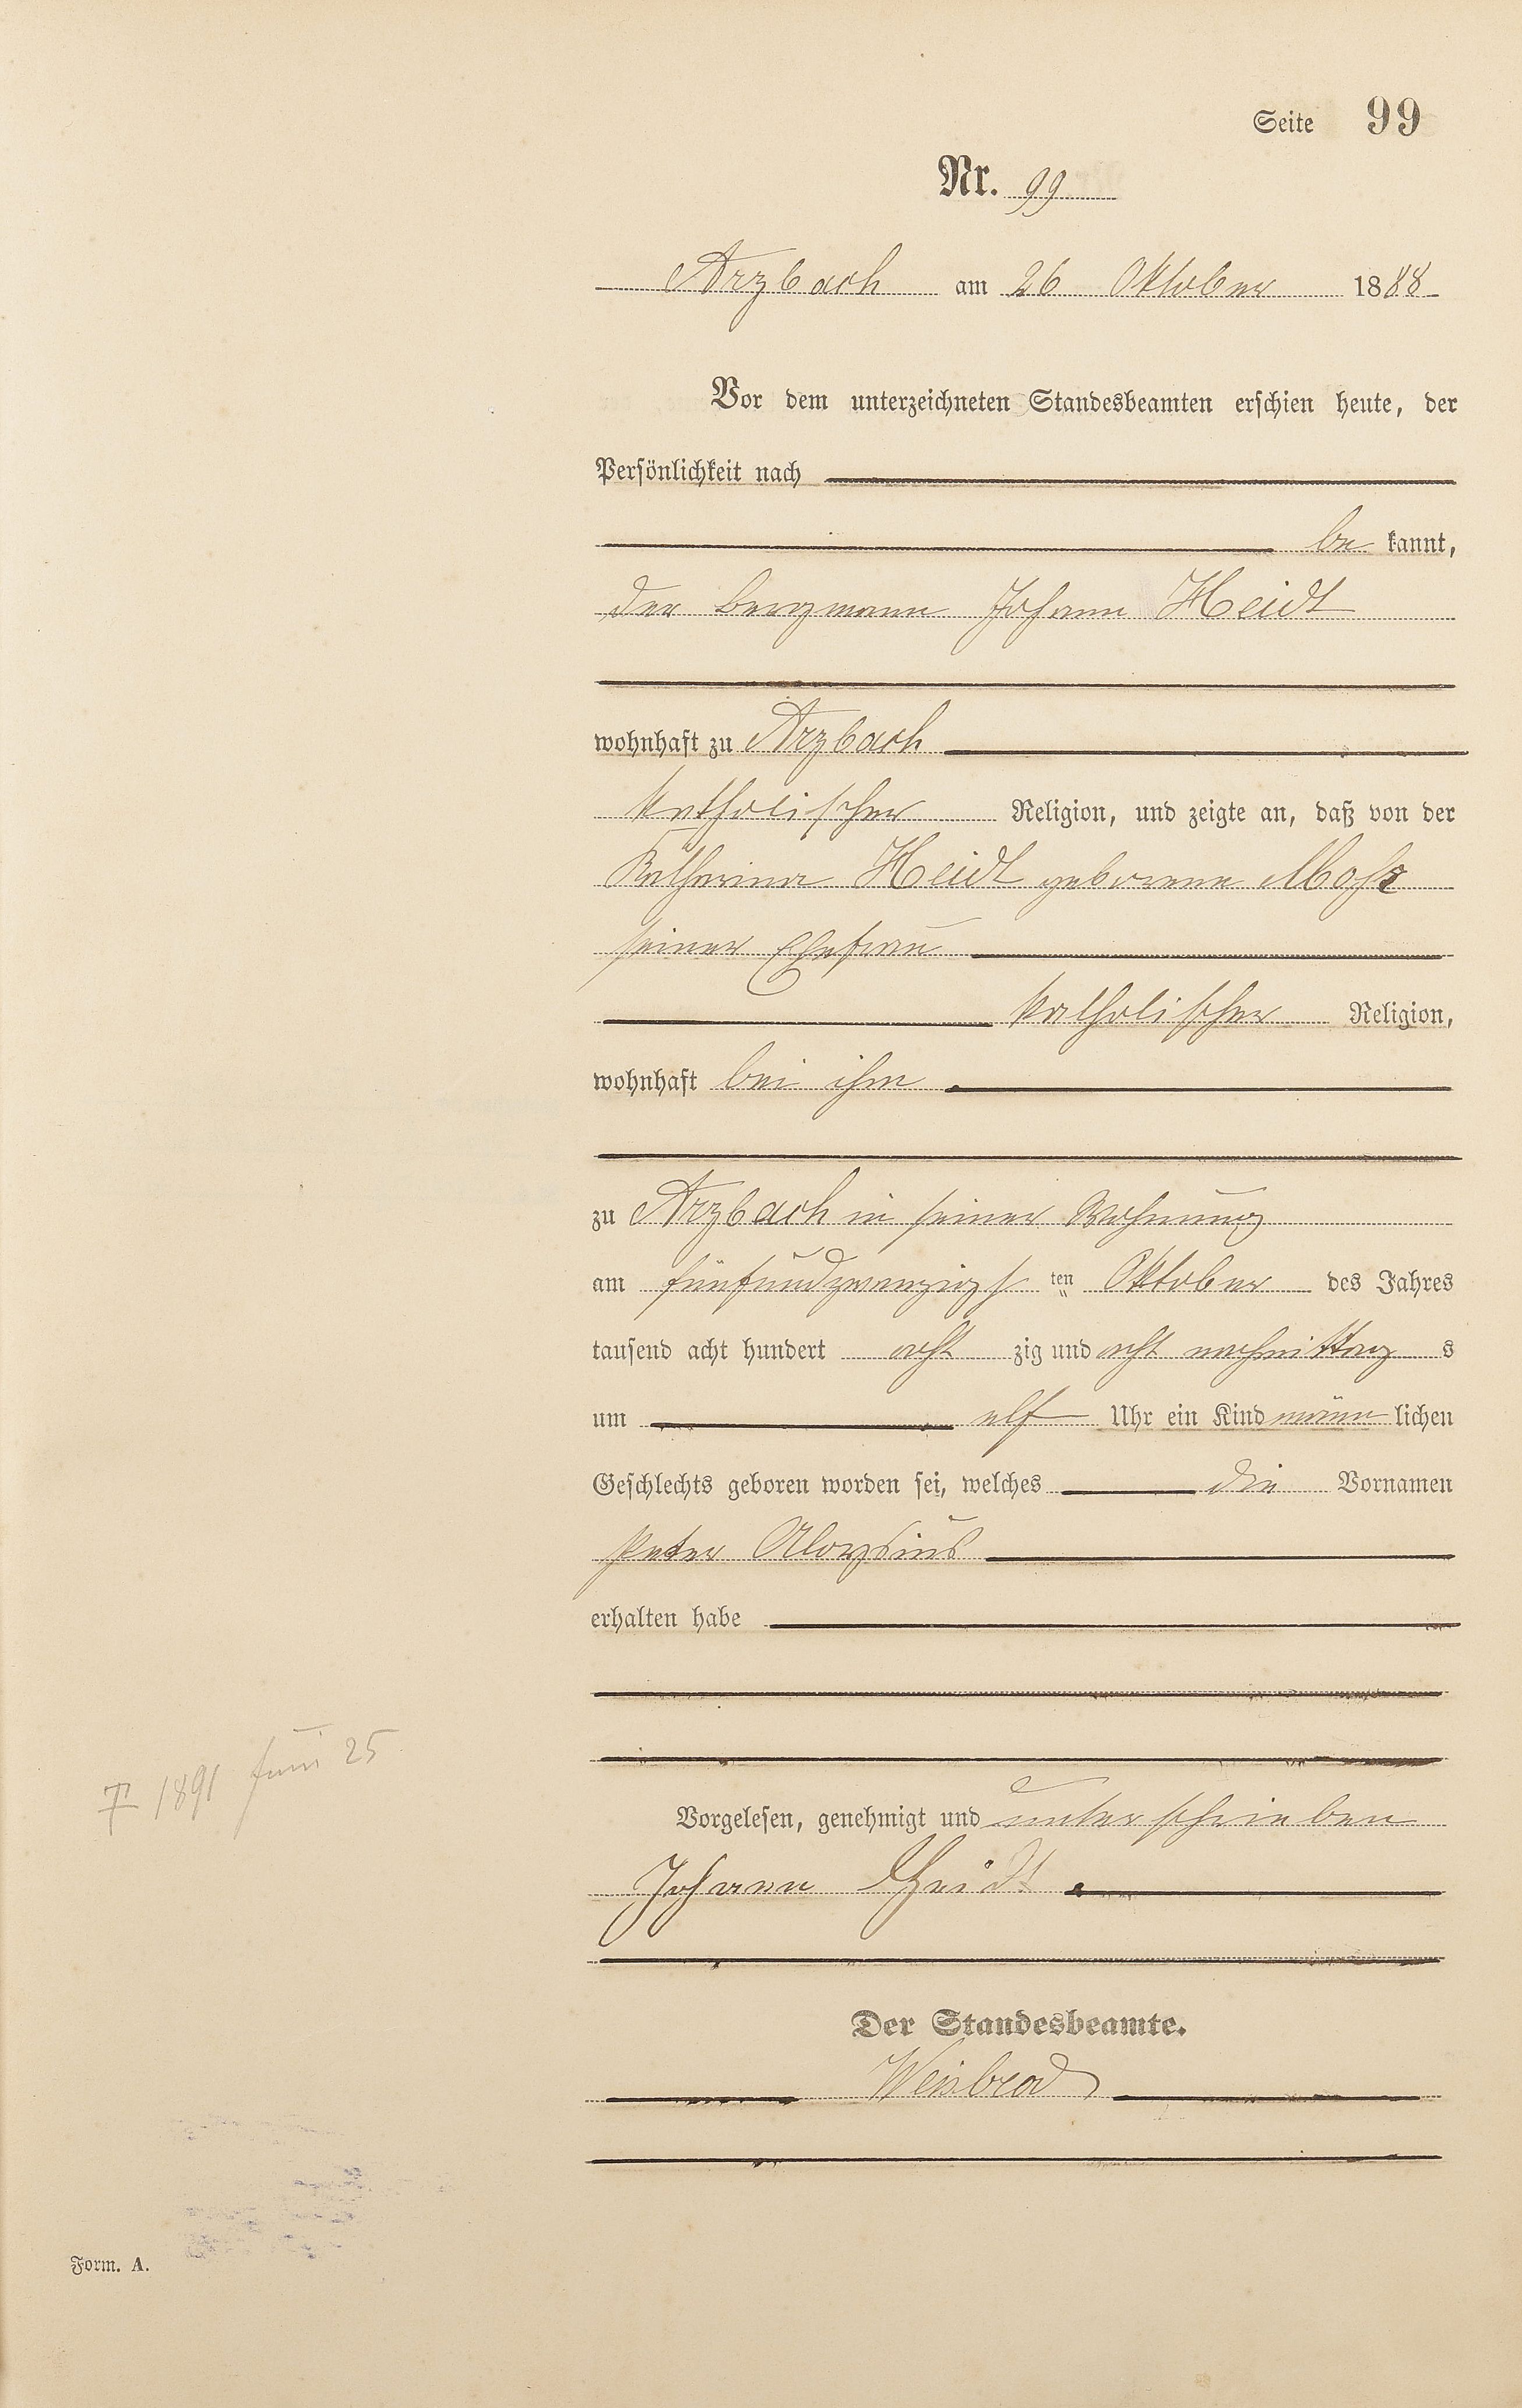 Seite 99
Nr. 99
Arzbach am 26 Oktober 1888
Vor dem unterzeichneten Standesbeamten erschien heute, der
Persönlichkeit nach
be kannt,
der Bergmann Johann Heidt
wohnhaft zu Arzbach
katholischer Religion, und zeigte an, daß von der
Katharina Heidt geborene
seiner Ehefrau
katholischer Religion,
wohnhaft bei ihm
zu Arzbach in seiner Wohnung
am fünfundzwanzigs ten Oktober des Jahres
tausend acht hundert acht zig und acht nachmittag s
um elf Uhr ein Kind männ lichen
Geschlechts geboren worden sei, welches die Vornamen
Peter Aloysius
erhalten habe
† 1891 Juni 25
Vorgelesen, genehmigt und unterschrieben
Johann Heidt
Der Standesbeamte.
Weisbrod
Form. A.